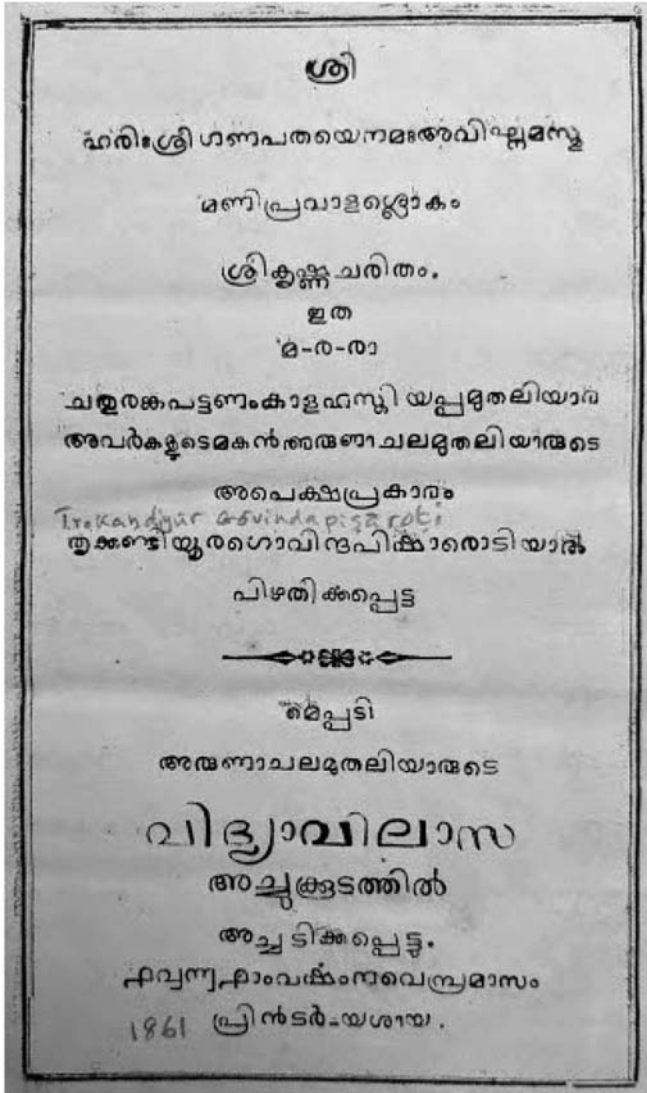 ശ്രീ
ഹരിഃശ്രീ ഗണപതയെനമഃഅവിഘ്നമസ്തു
മണിപ്രവാളശ്ലൊകം
ശ്രീകൃഷ്ണചരിതം.
ഇത
മ-ര-രാ
ചതുരങ്കപട്ടണംകാളഹസ്തി യപ്പമുതലിയാര
അവർകളുടെമകൻഅരുണാചലമുതലിയാരുടെ
അപെക്ഷപ്രകാരം
Trekandiyur Govindapisaroti
തൃക്കണ്ടിയൂരഗൊവിന്ദപിഷാരൊടിയാൽ
പിഴതിക്കപ്പെട്ട
മെപ്പടി
അരുണാചലമുതലിയാരുടെ
വിദ്യാവിലാസ
അച്ചുക്കൂടത്തിൽ
അച്ചടിക്കപ്പെട്ടു.
൧൮൬൧ാംവർഷം നവെമ്പ്രമാസം
1861 പ്രിൻടർ-യശായ.